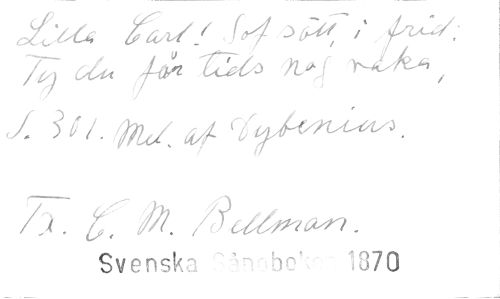 Lilla Carl! Sof sött i frid:
Ty du får tids nog vaka,
S. 301. Mel. af Dybenius.
Tx. C. M. Bellman.
Svenska Sångboken 1870